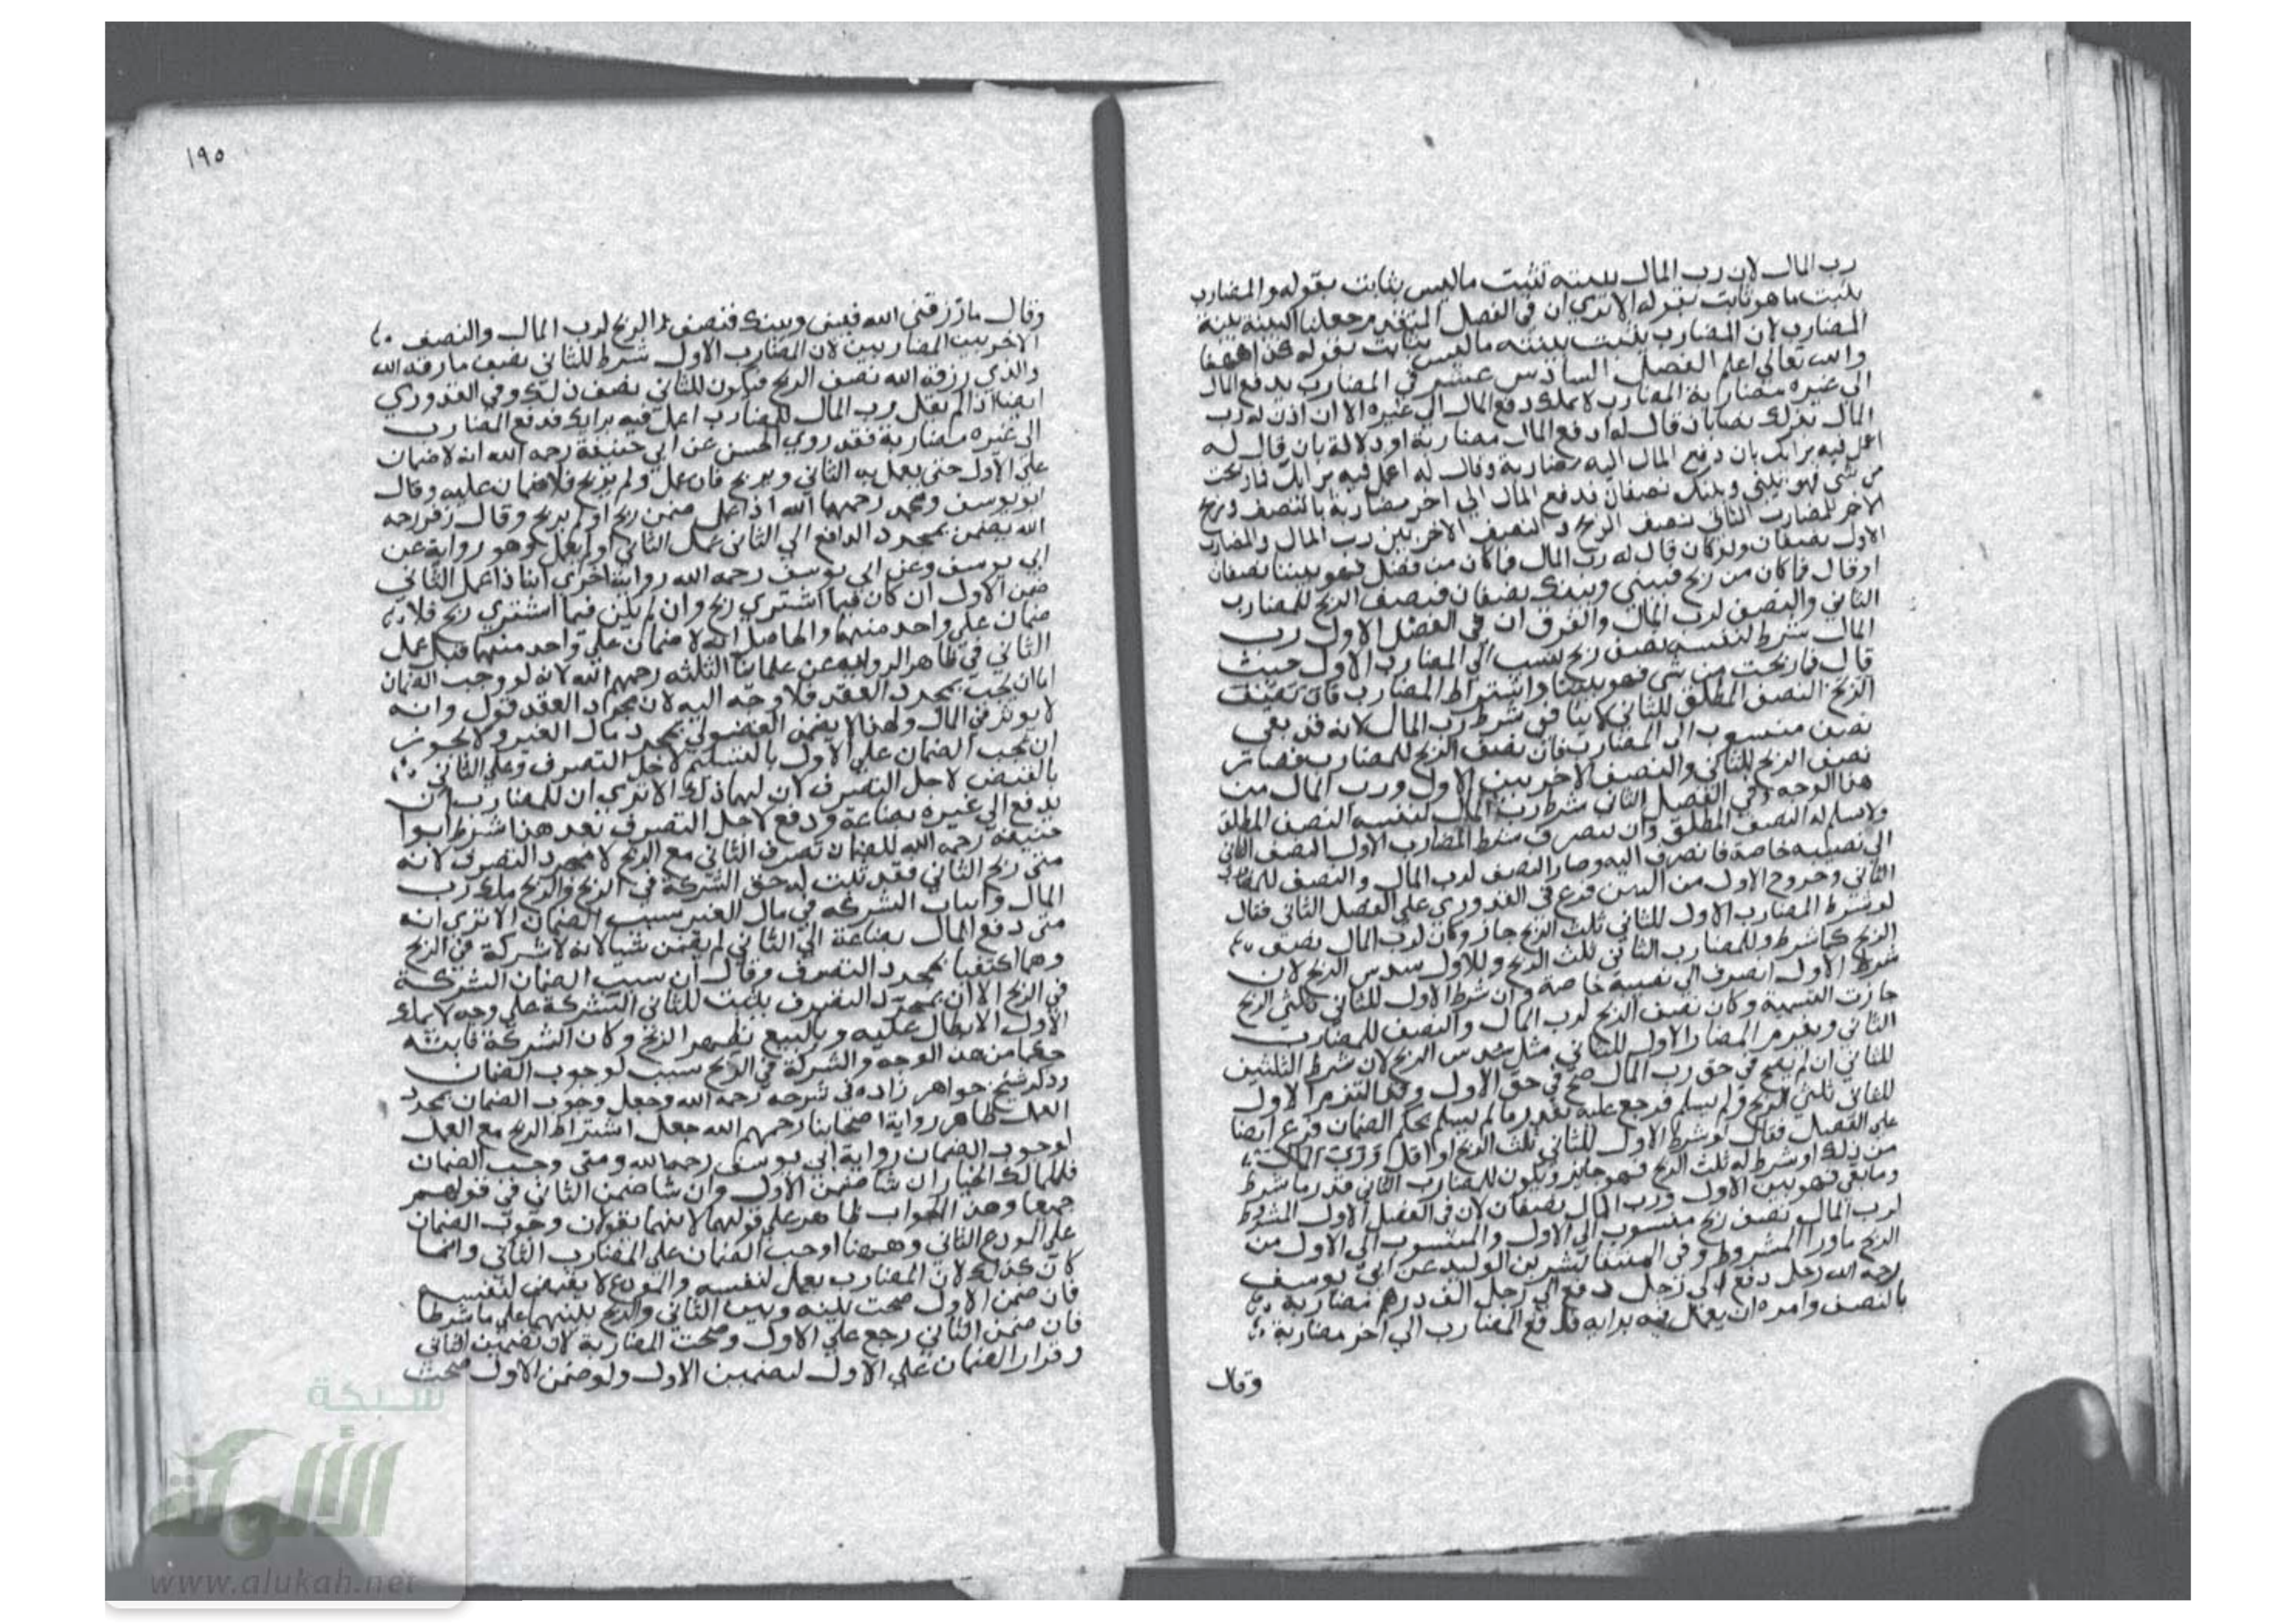 رب المال لان رب المال ببينته تثبت ما ليس بثابت بقوله والمضارب
يثبت ما هو ثابت بقوله الا ترى ان في الفصل المتقدم جعلنا البينة بينة
المضارب لان المضارب يثبت ببينته ما ليس بثابت بقوله كذا ههنا
والله تعالى اعلم الفصل السادس عشر في المضارب يدفع المال
الى غيره مضاربة المضارب لا يملك دفع المال الى غيره الا ان اذن له رب
المال بذلك نصا بان قال له ادفع المال مضاربة او دلالة بان قال له
اعمل فيه برايك بان دفع المال اليه مضاربة وقال له اعمل فيه برايك فما ربحت
من شي فهو بيني وبينك نصفان فدفع المال الى اخر مضاربة بالنصف وربح
الاخر للمضارب الثاني نصف الربح والنصف الاخر بين رب المال والمضارب
الاول نصفان ولو كان قال له رب المال فما كان من فضل فهو بيننا نصفان
او قال فما كان من ربح فبيني وبينك نصفان فنصف الربح للمضارب
الثاني والنصف لرب المال والفرق ان في الفصل الاول رب
المال شرط لنفسه نصف ربح ينسب الى المضارب الاول حيث
قال فما ربحت من شي فهو بيننا واشتراط المضارب
الربح النصف المطلق للثاني لا ينافي شرط رب المال لانه قد بقي
نصف منسوب الى المضارب فان نصف الربح للمضارب فصار
نصف الربح للثاني والنصف الاخر بين الاول ورب المال من
هذا الوجه وفي الفصل الثاني شرط رب المال لنفسه النصف المطلق
ولا يسلم له النصف المطلق وان ينصرف شرط المضارب الاول النصف الثاني
الى نصيبه خاصة فانصرف اليه وصار النصف لرب المال والنصف للمضارب
الثاني وخروج الاول من البين فرع في القدوري على الفصل الثاني فقال
لو شرط المضارب الاول للثاني ثلث الربح جاز وكان لرب المال نصف
الربح كما شرط وللمضارب الثاني ثلث الربح وللاول سدس الربح لان
شرط الاول انصرف الى نفسه خاصة وان شرط الاول للثاني ثلثي الربح
جازت التسمية وكان نصف الربح لرب المال والنصف للمضارب
الثاني ويغرم المضار الاول للثاني مثل سدس الربح لان شرط الثلثين
للثاني ان لم يصح في حق رب المال صح في حق الاول وقد التزم الاول
للثاني ثلثي الربح ولم يسلم فرجع عليه بقدر ما لم يسلم بحكم الضمان فرع ايضا
على الفصل فقال لو شرط الاول للثاني ثلث الربح او اقل
من ذلك او شرط له ثلث الربح فهو جايز ويكون للمضارب الثاني قدر ما شرط
وما بقي فهو بين الاول ورب المال نصفان لان في الفصل الاول المشروط
لرب المال نصف ربح منسوب الى الاول والمنسوب الى الاول من
الربح ما ورا المشروط وفي المنتقا بشر بن الوليد عن ابي يوسف
رحمه الله رجل دفع الى رجل دفع الى رجل الف درهم مضاربة
بالنصف وامره ان يعمل فيه برايه فدفع المضارب الى اخر مضاربة
وقال
١٩٥
وقال ما رزقني الله فبيني وبينك فنصف الربح لرب المال والنصف
الاخر بين المضاربين لان المضارب الاول شرط للثاني نصف ما رزقه الله
والذي رزقه الله نصف الربح فيكون للثاني نصف ذلك وفي القدوري
ايضا اذا لم يقل رب المال للمضارب اعمل فيه برايك فدفع المضارب
الى غيره مضاربة فقد روى الحسن عن ابي حنيفة رحمه الله انه لا ضمان
على الاول حتى يعمل به الثاني ويربح فان عمل ولم يربح فلا ضمان عليه وقال
ابو يوسف ومحمد رحمهما الله اذا عمل ضمن ربح او لم يربح وقال زفر رحمه
الله يضمن بمجرد الدافع الى الثاني عمل الثاني او لم يعمل وهو رواية عن
ابي يوسف وعن ابي يوسف رحمه الله رواية اخرى اذا عمل الثاني
ضمن الاول ان كان فيما اشترى ربح وان لم يكن فيما اشترى ربح فلا
ضمان على واحد منهما والحاصل انه لا ضمان على واحد منهما قبل عمل
الثاني في ظاهر الرواية عن علمائنا الثلثه رحمهم الله لانه لو وجب الضمان
اما ان يجب بمجرد العقد فلا وجه اليه لان مجرد العقد قول وانه
لا يوثر في المال ولهذا لا يضمن الفضولي بمجرد مال الغير ولا يجوز
ان يجب الضمان على الاول بالتسليم لاجل التصرف وعلى الثاني
بالقبض لاجل التصرف لان لهما ذلك الا ترى ان للمضارب ان
يدفع الى غيره بضاعة ودفع لاجل التصرف بعد هذا شرط ابوا
حنيفة رحمه الله للضمان تصرف الثاني مع الربح لا مجرد التصرف لانه
متى ربح الثاني فقد ثبت له حق الشركة في الربح والربح ملك رب
المال واثبات الشركة في مال الغير سبب الضمان الا ترى انه
متى دفع المال بضاعة الى الثاني لم يضمن شيا لانه لا شركة في الربح
وهما اكتفيا بمجرد التصرف وقال ان سبب الضمان الشركة
في الربح الا ان بمجرد التصرف يثبت للثاني الشركة على وجه لا يملك
الاول الابطال عليه وبالبيع يظهر الربح وكان الشركة ثابتة
حكما من هذا الوجه والشركة في الربح سبب لوجوب الضمان
وذكر شيخ جواهر زاده في شرحه رحمه الله وجعل وجوب الضمان بمجرد
العمل ظاهر رواية اصحابنا رحمهم الله جعل اشتراط الربح مع العمل
لوجوب الضمان رواية ابي يوسف رحمه الله ومتى وجب الضمان
فللمالك الخيار ان شا ضمن الاول وان شا ضمن الثاني في قولهم
جميعا وهذا الجواب ظاهر على قولهما لانهما يقولان وجوب الضمان
على المودع الثاني وههنا اوجب الضمان على المضارب الثاني وانما
كان كذلك لان المضارب يعمل لنفسه والمودع لا يقبض لنفسه
فان ضمن الاول صحت بينه وبين الثاني والربح بينهما على ما شرطا
فان ضمن الثاني رجع على الاول وصحت المضاربة لان تضمين الثاني
وقرار الضمان على الاول لتضمين الاول ولو ضمن الاول صحت
شبكة
الألوكة
www.alukah.net